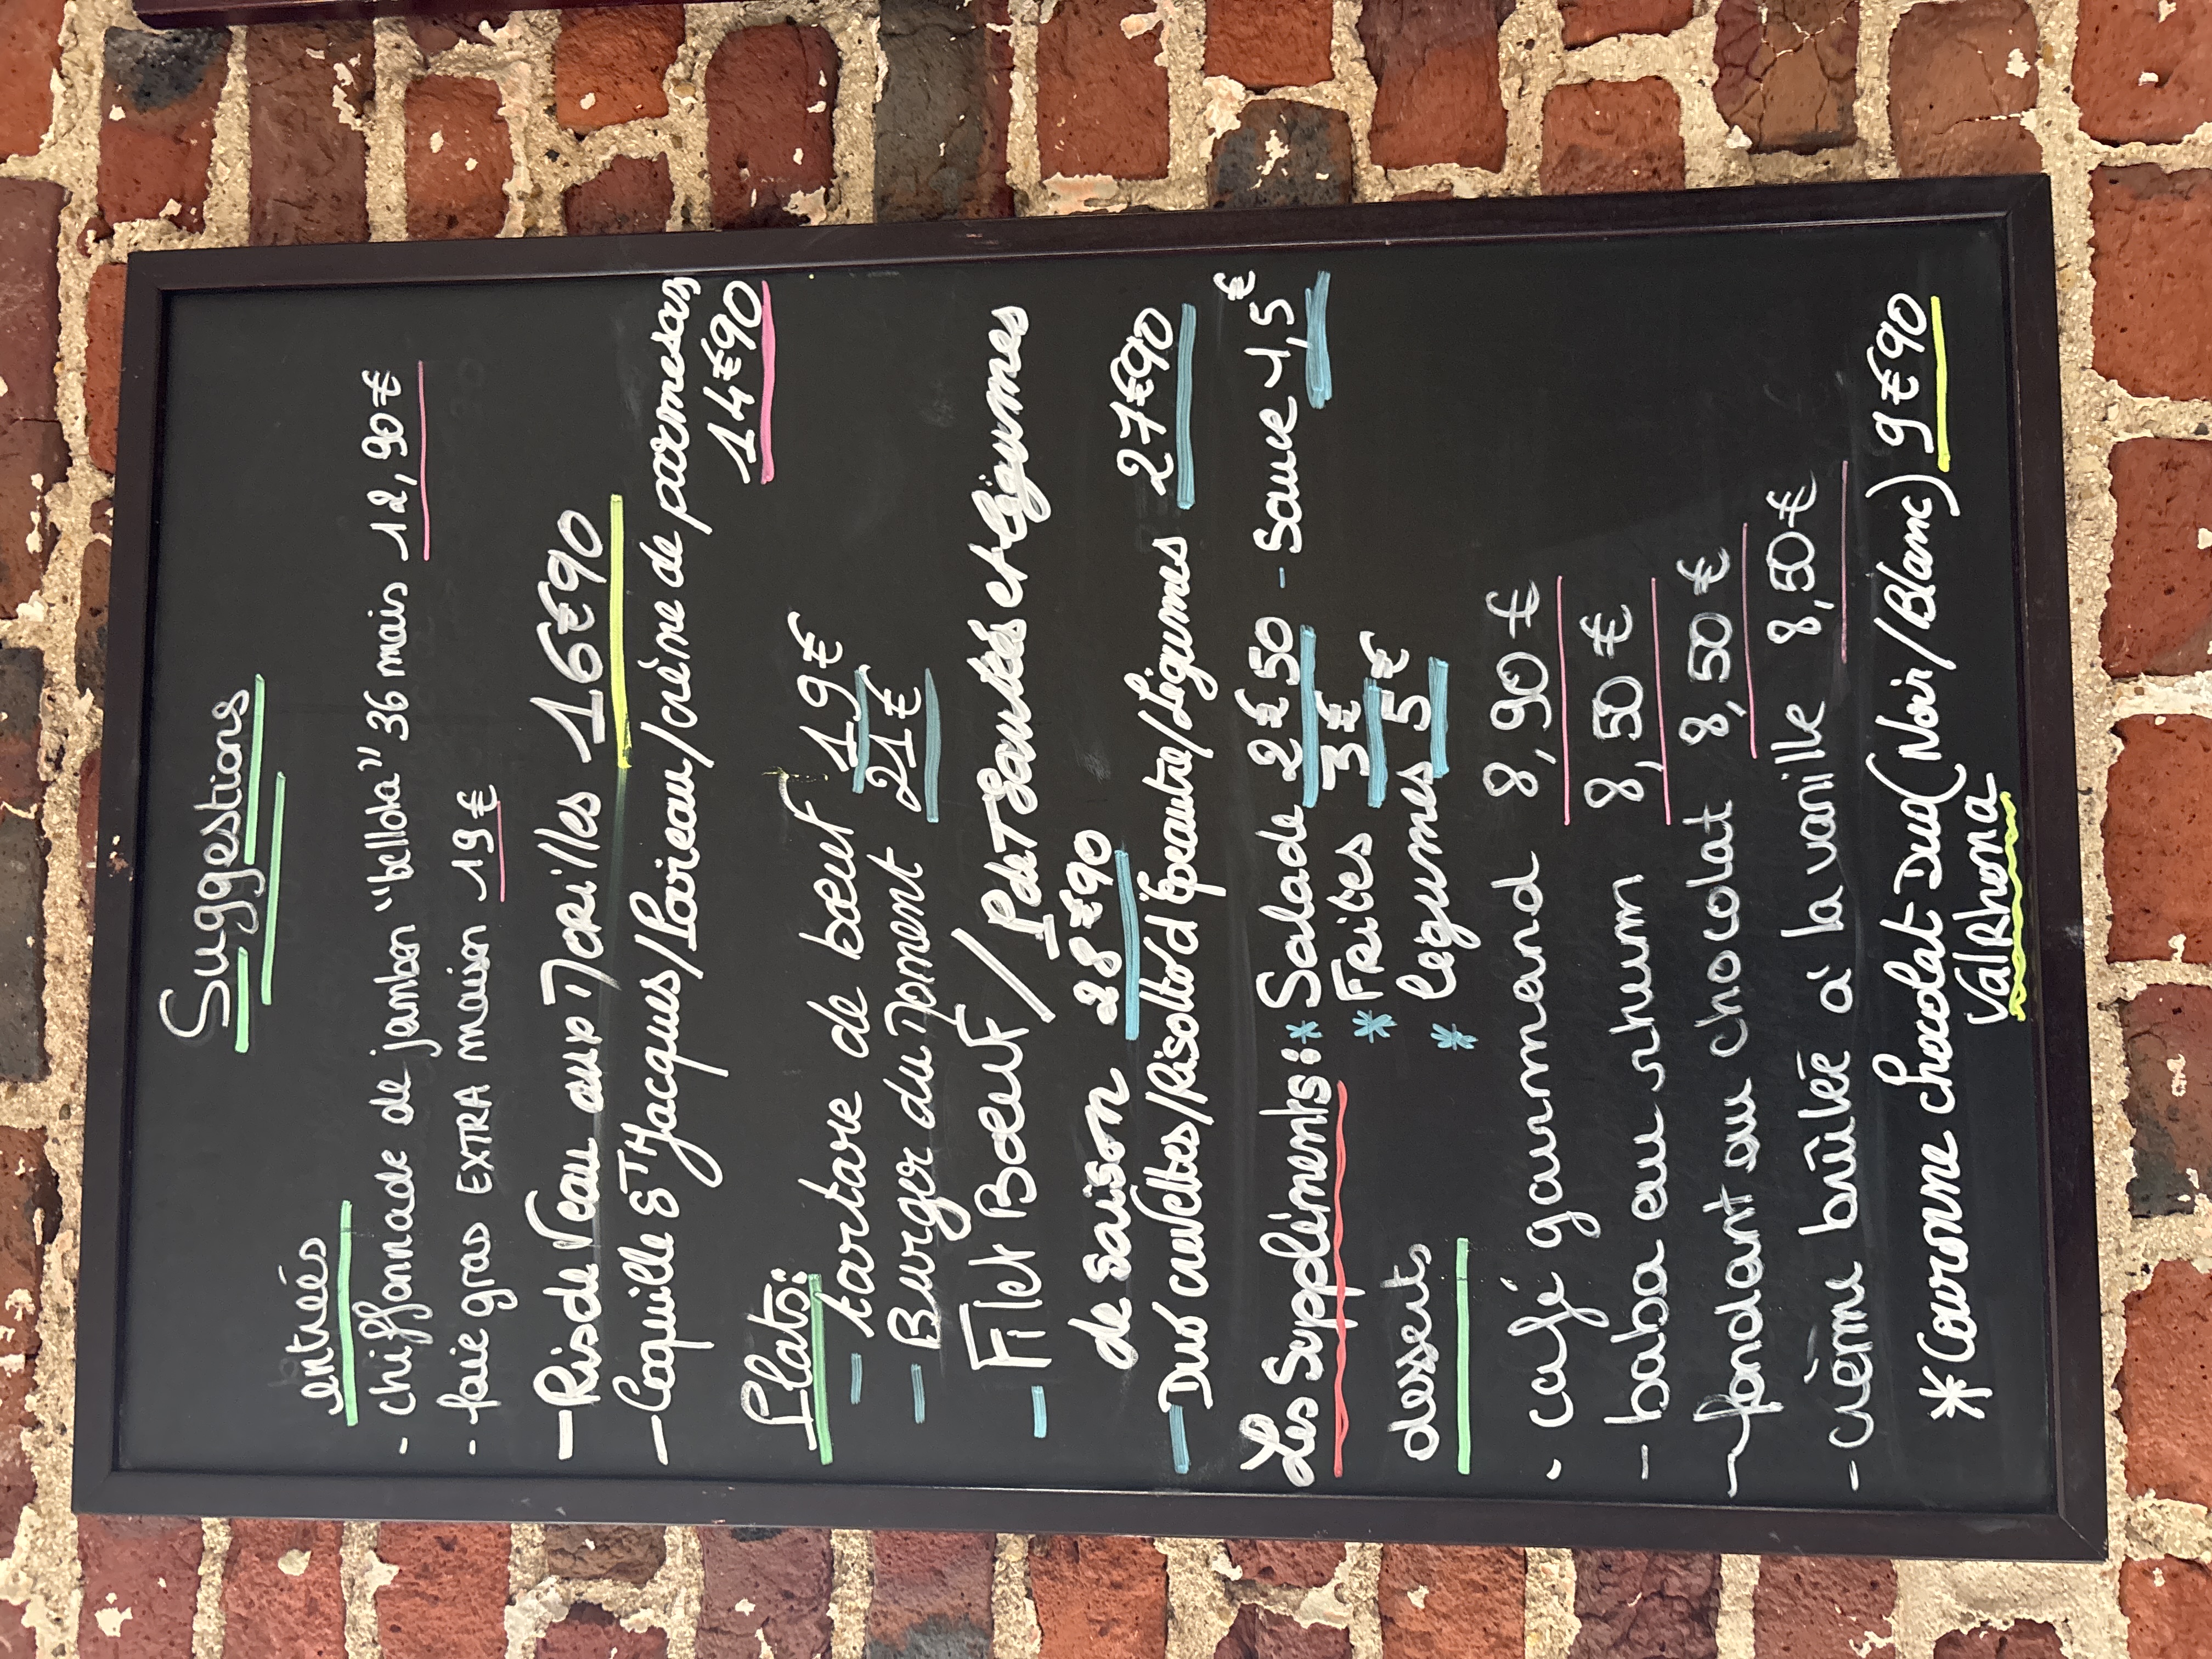 Suggestions
entrées
- chiffonnade de jambon "bellota" 36 mois 12,90€
- foie gras EXTRA maison 19€
- Ris de Veau aux Morilles 16€90
- Coquille ST Jacques/Poireau/crème de parmesan
14€90
Plats:
- tartare de bœuf 19€
- Burger du Moment 21€
- Filet Boeuf / Pdt Sautées et légumes
de saison 28€90
- Duo crevettes/Risotto d'Épeautre/Légumes 27€90
Les Suppléments: * Salade 2€50 - Sauce 4,5€
* Frites 3€
* légumes 5€
dessert
- café gourmand 8,90€
- baba au rhum 8,50€
- fondant au chocolat 8,50€
- crème brûlée à la vanille 8,50€
* Couronne chocolat Duo (Noir/Blanc) 9€90
ValRhona